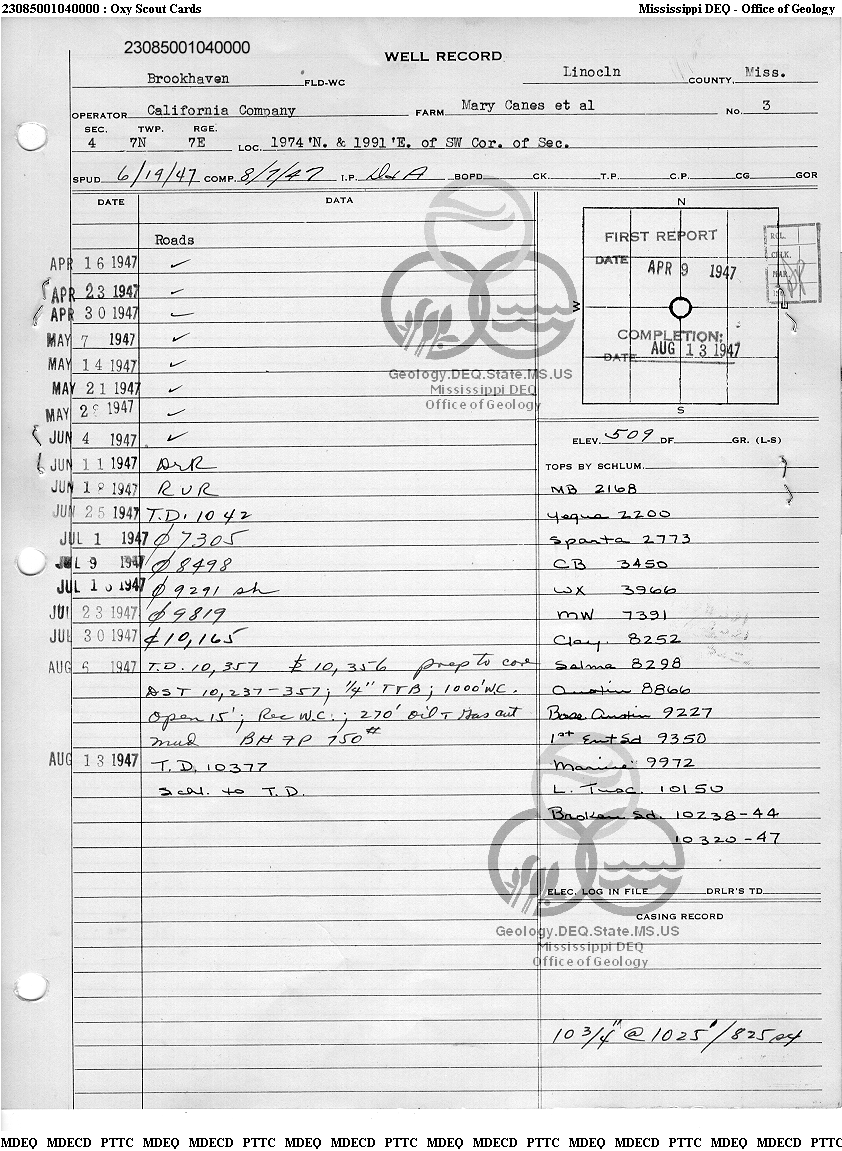 23085001040000 : Oxy Scout Cards Mississippi DEQ - Office of Geology
23085001040000
WELL RECORD
Brookhaven FLD-WC Lincoln COUNTY, Miss.
OPERATOR California Company FARM Mary Canes et al No. 3
SEC. TWP. RGE.
4 7N 7E LOC. 1974'N. & 1991'E. of SW Cor. of Sec.
SPUD 6/19/47 COMP. 8/7/47 I.P. D&A BOPD CK. T.P. C.P. CG GOR
DATE DATA
Roads
APR 16 1947 ✓
APR 23 1947 ✓
APR 30 1947 ✓
MAY 7 1947 ✓
MAY 14 1947 ✓
MAY 21 1947 ✓
MAY 28 1947 ✓
JUN 4 1947 ✓
JUN 11 1947 DrR
JUN 18 1947 RUR
JUN 25 1947 T.D. 1042
JUL 1 1947 ϕ 7305
JUL 9 1947 ϕ 8498
JUL 16 1947 ϕ 9291 sh
JUL 23 1947 ϕ 9819
JUL 30 1947 ¢ 10,165
AUG 6 1947 T.D. 10,357 10,356 prep to core
DST 10,237-357; 1/4" TTB; 1000'W.C.
Open 15'; Rec W.C.; 270' Oil + Gas cut
mud BHFP 750#
AUG 13 1947 T.D. 10377
Schl. to T.D.
N
FIRST REPORT
DATE APR 9 1947
W
COMPLETION:
DATE AUG 13 1947
S
RCL.
CHK.
MAR.
ELEV. 509 DF GR. (L-S)
TOPS BY SCHLUM.
MB 2168
Yegua 2200
Sparta 2773
CB 3450
WX 3966
MW 7391
Clay. 8252
Selma 8298
Austin 8866
Base Austin 9227
1st Eut Sd 9350
Marine 9972
L. Tusc. 10150
Broken Sd. 10238-44
10320-47
ELEC. LOG IN FILE DRLR'S TD
CASING RECORD
10 3/4" @ 1025'/825 sx
Geology.DEQ.State.MS.US
Mississippi DEQ
Office of Geology
Geology.DEQ.State.MS.US
Mississippi DEQ
Office of Geology
MDEQ MDECD PTTC MDEQ MDECD PTTC MDEQ MDECD PTTC MDEQ MDECD PTTC MDEQ MDECD PTTC MDEQ MDECD PTTC